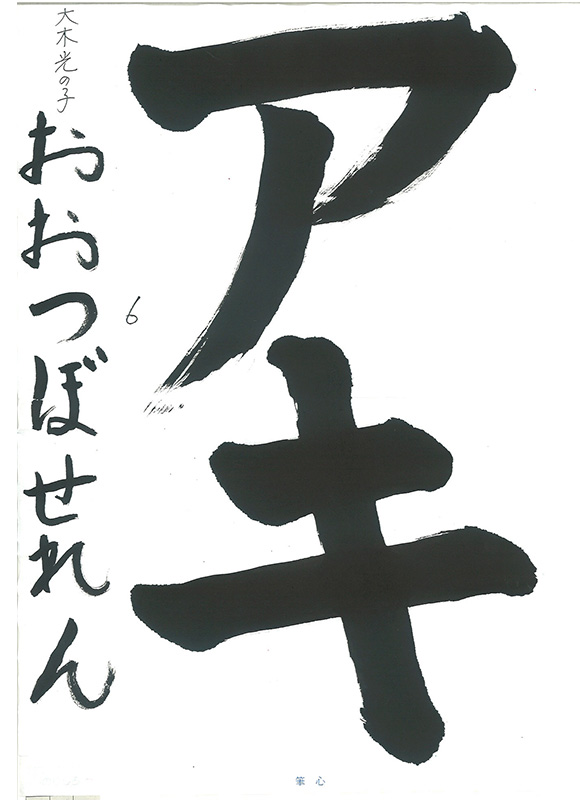 アキ
6
大木光の子
おおつぼせれん
筆心